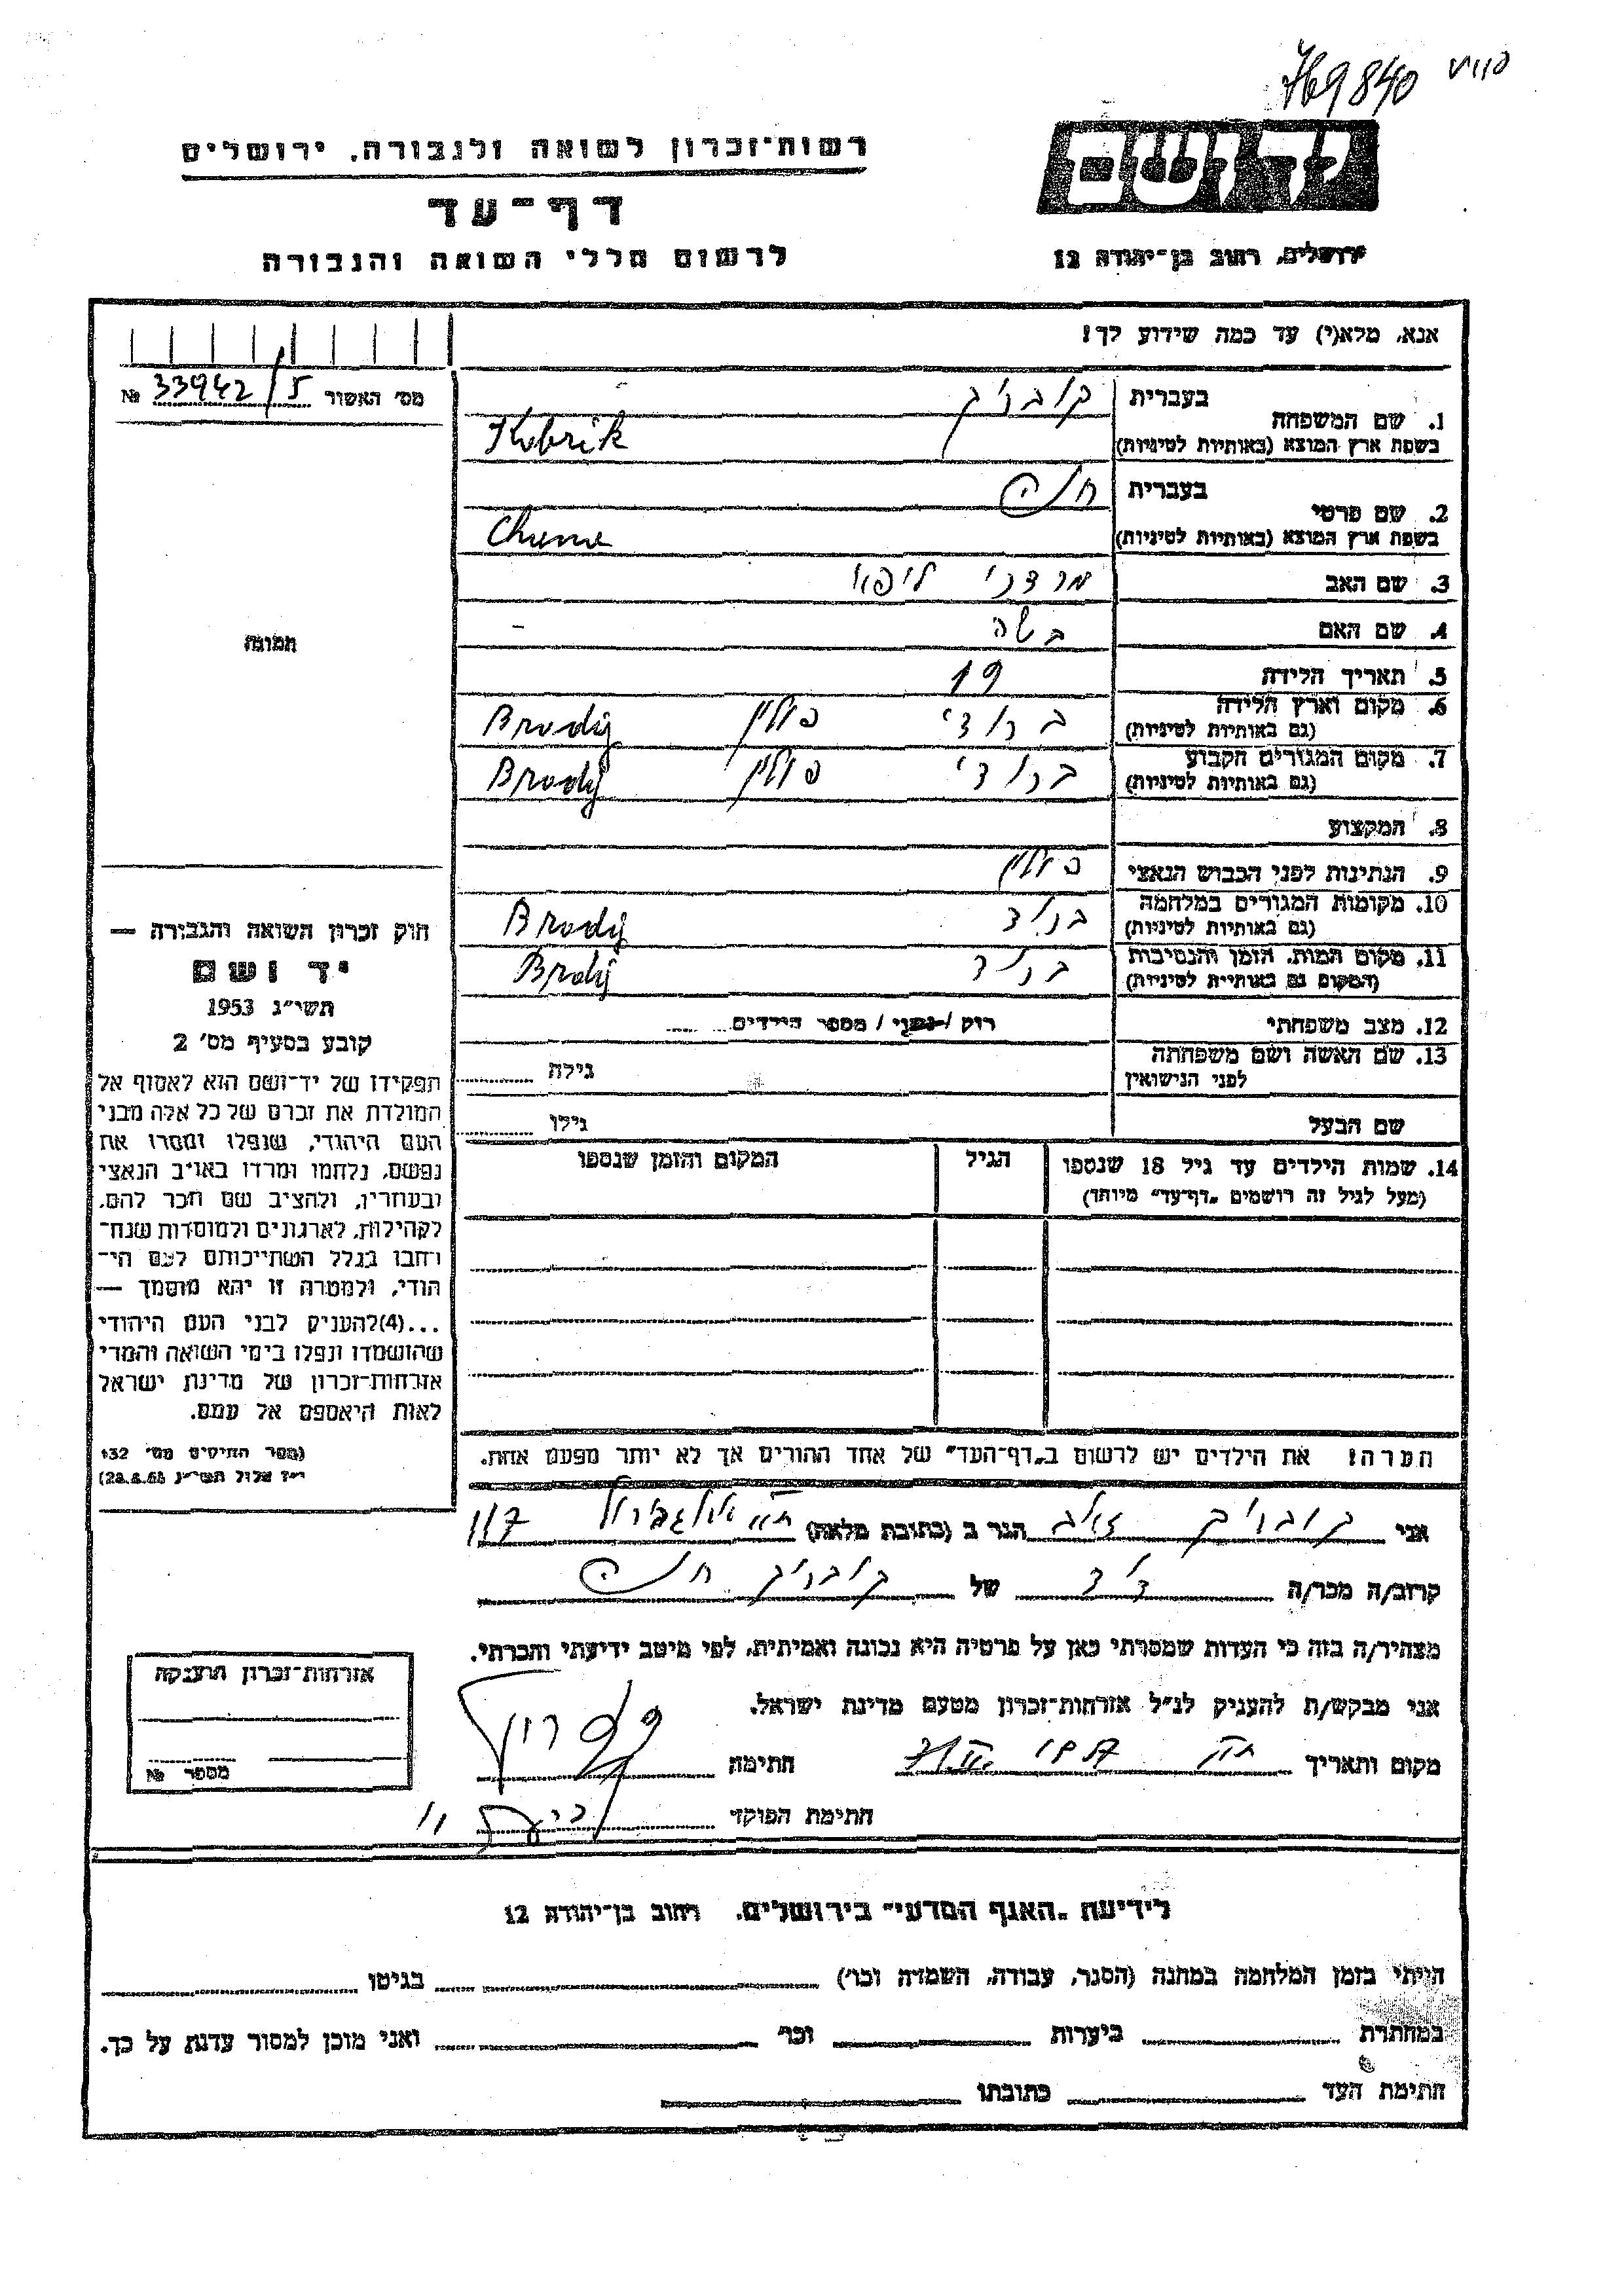 769840
רשות־זכרון לשואה ולגבורה, ירושלים
דף־עד
לרשום חללי השואה והגבורה
יד ושם
ירושלים, רחוב בן־יהודה 12
אנא, מלא(י) עד כמה שידוע לך!
מס׳ האשור 33942/5 №
1. שם המשפחה
בעברית קובריק
בשפת ארץ המוצא (באותיות לטיניות) Kobrik
2. שם פרטי
בעברית
בשפת ארץ המוצא (באותיות לטיניות)
3. שם האב מרדכי ליפא
4. שם האם בשה -
5. תאריך הלידה 19
6. מקום וארץ הלידה ברודי פולין Brodij
(גם באותיות לטיניות)
7. מקום המגורים הקבוע ברודי פולין Brodij
(גם באותיות לטיניות)
8. המקצוע
9. הנתינות לפני הכבוש הנאצי פולין
10. מקומות המגורים במלחמה ברוד Brodij
(גם באותיות לטיניות)
11. מקום המות, הזמן והנסיבות ברוד Brodij
(המקום גם באותיות לטיניות)
12. מצב משפחתי רוק / נשוי / מספר הילדים
13. שם האשה ושם משפחתה גילה
לפני הנישואין
שם הבעל גילו
14. שמות הילדים עד גיל 18 שנספו הגיל המקום והזמן שנספו
(מעל לגיל זה רושמים „דף־עד” מיוחד)
הערה! את הילדים יש לרשום ב„דף־העד” של אחד ההורים אך לא יותר מפעם אחת.
תמונה
חוק זכרון השואה והגבורה —
יד ושם
תשי״ג 1953
קובע בסעיף מס׳ 2
תפקידו של יד־ושם הוא לאסוף אל
המולדת את זכרם של כל אלה מבני
העם היהודי, שנפלו ומסרו את
נפשם, נלחמו ומרדו באויב הנאצי
ובעוזריו, ולהציב שם וזכר להם,
לקהילות, לארגונים ולמוסדות שנח־
רחבו בגלל השתייכותם לעם הי־
הודי, ולמטרה זו יהא מוסמך —
...(4) להעניק לבני העם היהודי
שהושמדו ונפלו בימי השואה והמרי
אזרחות־זכרון של מדינת ישראל
לאות היאספם אל עמם.
(ספר החוקים מס׳ 132
י״ז אלול תשי״ג 28.8.53)
אני קובריק הגר ב (כתובת מלאה) 117
קרוב/ה מכר/ה דוד של קובריק
מצהיר/ה בזה כי העדות שמסרתי כאן על פרטיה היא נכונה ואמיתית, לפי מיטב ידיעתי והכרתי.
אני מבקש/ת להעניק לנ״ל אזרחות־זכרון מטעם מדינת ישראל.
מקום ותאריך חתימה
חתימת הפוקד
אזרחות־זכרון הוענקה
מספר №
לידיעת „האגף המדעי” בירושלים, רחוב בן־יהודה 12
הייתי בזמן המלחמה במחנה (הסגר, עבודה, השמדה וכו׳) בגיטו
במחתרת ביערות וכו׳ ואני מוכן למסור עדות על כך.
חתימת העד כתובתו